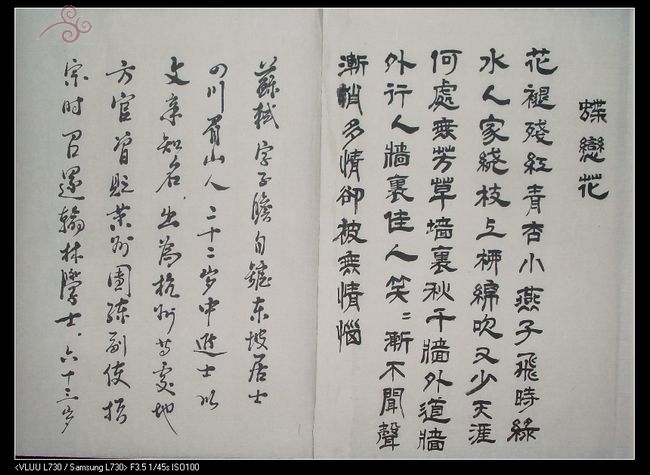 蝶戀花
花褪殘紅青杏小燕子飛時綠
水人家繞枝上柳綿吹又少天涯
何處無芳草墻裏秋千牆外道牆
外行人牆裏佳人笑〻漸不聞聲
漸悄多情卻被無情惱
蘇軾字子瞻自號東坡居士
四川眉山人二十二岁中進士以
文章知名，出為杭州等處地
方官曾貶黄州團練副使哲
宗时召還翰林學士。六十三岁
<VLUU L730 / Samsung L730> F3.5 1/45s ISO100